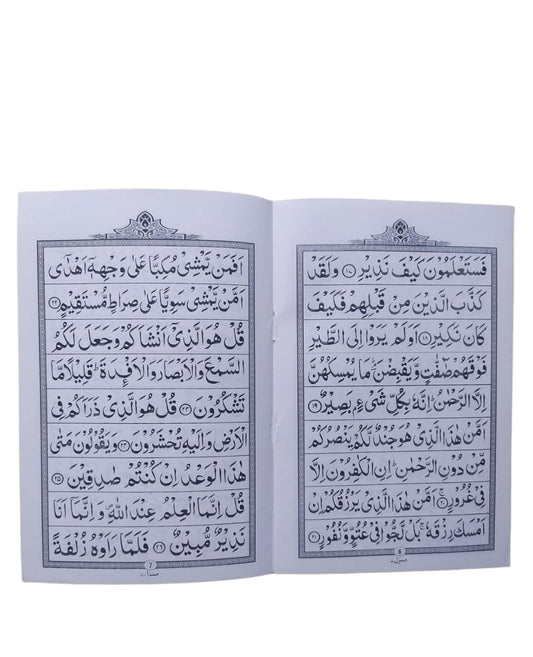 فَسَتَعْلَمُوْنَ كَيْفَ نَذِيْرِ ﴿۱۷﴾ وَلَقَدْ
كَذَّبَ الَّذِيْنَ مِنْ قَبْلِهِمْ فَكَيْفَ
كَانَ نَكِيْرِ ﴿۱۸﴾ اَوَلَمْ يَرَوْا اِلَى الطَّيْرِ
فَوْقَهُمْ صٰٓفّٰتٍ وَّيَقْبِضْنَ ؕ مَا يُمْسِكُهُنَّ
اِلَّا الرَّحْمٰنُ ؕ اِنَّهٗ بِكُلِّ شَيْءٍۢ بَصِيْرٌ ﴿۱۹﴾
اَمَّنْ هٰذَا الَّذِيْ هُوَ جُنْدٌ لَّكُمْ يَنْصُرُكُمْ
مِّنْ دُوْنِ الرَّحْمٰنِ ؕ اِنِ الْكٰفِرُوْنَ اِلَّا
فِيْ غُرُوْرٍ ﴿۲۰﴾ اَمَّنْ هٰذَا الَّذِيْ يَرْزُقُكُمْ اِنْ
اَمْسَكَ رِزْقَهٗ ۚ بَلْ لَّجُّوْا فِيْ عُتُوٍّ وَّنُفُوْرٍ ﴿۲۱﴾
6
اَفَمَنْ يَّمْشِيْ مُكِبًّا عَلٰى وَجْهِهٖٓ اَهْدٰٓى
اَمَّنْ يَّمْشِيْ سَوِيًّا عَلٰى صِرَاطٍ مُّسْتَقِيْمٍ ﴿۲۲﴾
قُلْ هُوَ الَّذِيْٓ اَنْشَاَكُمْ وَجَعَلَ لَكُمُ
السَّمْعَ وَالْاَبْصَارَ وَالْاَفْئِدَةَ ؕ قَلِيْلًا مَّا
تَشْكُرُوْنَ ﴿۲۳﴾ قُلْ هُوَ الَّذِيْ ذَرَاَكُمْ فِي
الْاَرْضِ وَاِلَيْهِ تُحْشَرُوْنَ ﴿۲۴﴾ وَيَقُوْلُوْنَ مَتٰى
هٰذَا الْوَعْدُ اِنْ كُنْتُمْ صٰدِقِيْنَ ﴿۲۵﴾
قُلْ اِنَّمَا الْعِلْمُ عِنْدَ اللّٰهِ ۪ وَاِنَّمَاۤ اَنَا
نَذِيْرٌ مُّبِيْنٌ ﴿۲۶﴾ فَلَمَّا رَاَوْهُ زُلْفَةً
7